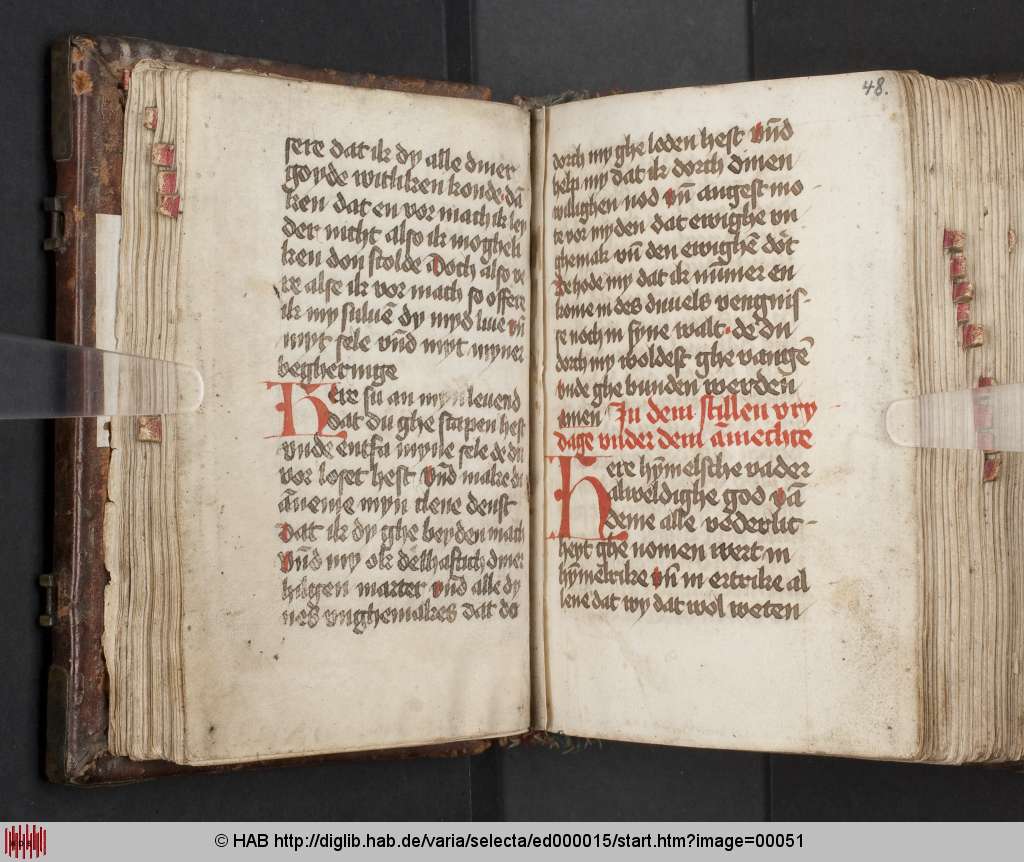 sere dat ik dy alle diner
goyde withken konde · dā
ken dat en vor mach ik ley
der nicht also ik moghelk
ken don scolde Doch also ve
re alse ik vor mach so offere
ik my suluē dy myd liue vn̄
myt sele vn̄d myt myner
begheringe
Here su an myn leuend
dat du ghe scapen hest
vnde entfa myne sele de du
vor loset hest vn̄d make di
āneme myn clene denst
Dat ik dy ghe beyden mach
vn̄d my ok delhaftich diner
hilgen marter vn̄d alle dy
nes vnghemakes dat du
48.
dorch my ghe leden hest vn̄d
help my dat ik dorch dinen
willighen nod vn̄ angest mo-
te vor myden dat ewighe vn
ghemak vn̄ den ewighē dot
Behode my dat ik nūmer en
kome in des duuels vengnis-
se noch in syne walt · de du
dorch my woldest ghe vangē
vnde ghe bunden werden
amen In dem stillen vry
dage vnder dem āmechte
Here hȳmelsche vader
alweldighe god vā
deme alle vederlic-
heyt ghe nomen wert in
hȳmelrike vn̄ in ertrike al
lene dat wy dat wol weten
© HAB http://diglib.hab.de/varia/selecta/ed000015/start.htm?image=00051